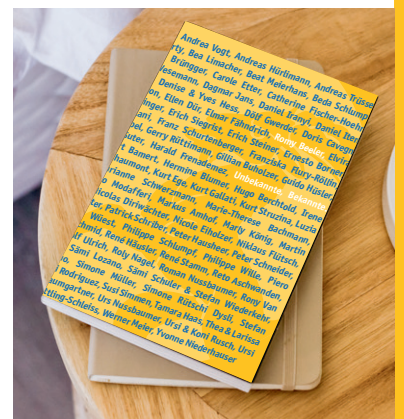 Andrea Vogt, Andreas Hürlimann, Andreas Trüssel
rty, Bea Limacher, Beat Meierhans, Beda Schlumpf
Brüngger, Carole Etter, Catherine Fischer-Hoehn
esemann, Dagmar Jans, Daniel Iranyi, Daniel Iten
Denise & Yves Hess, Dölf Gwerder, Doris Cavegn
on, Eljen Dür, Elmar Fähndrich, Romy Beeler, Elvira
inger, Erich Siegrist, Erich Steiner, Ernesto Borner
ani, Franz Schurtenberger, Franziska Flury-Röllin
el, Gerry Rüttimann, Gillian Buholzer, Guido Hüsler
uter, Harald Frenademez, Unbekannte, Bekannte
t Bamert, Hermine Blumer, Hugo Berchtold, Irene
haumont, Kurt Ege, Kurt Gallati, Kurt Struzina, Luzia
rianne Schwerzmann, Marie-Therese Bachmann,
o Modafferi, Markus Amhof, Marly König, Martin
icolas Diriwächter, Nicole Eiholzer, Niklaus Flütsch,
ter, Patrick Schriber, Peter Hausheer, Peter Schneider,
Wüest, Philippe Schlumpf, Philippe Wille, Piero
hmid, René Häusler, René Stamm, Reto Aschwanden,
f Ulrich, Roly Nagel, Roman Nussbaumer, Rony Van
Sämi Lozano, Sämi Schuler & Stefan Wiederkehr,
o, Simone Müller, Simone Rütschi Dysli, Stefan
l Rodriguez, Susi Simmen, Tamara Haas, Thea & Larissa
aumgartner, Urs Nussbaumer, Ursi & Koni Rusch, Ursi
ttling-Schleiss, Werner Meier, Yvonne Niederhauser